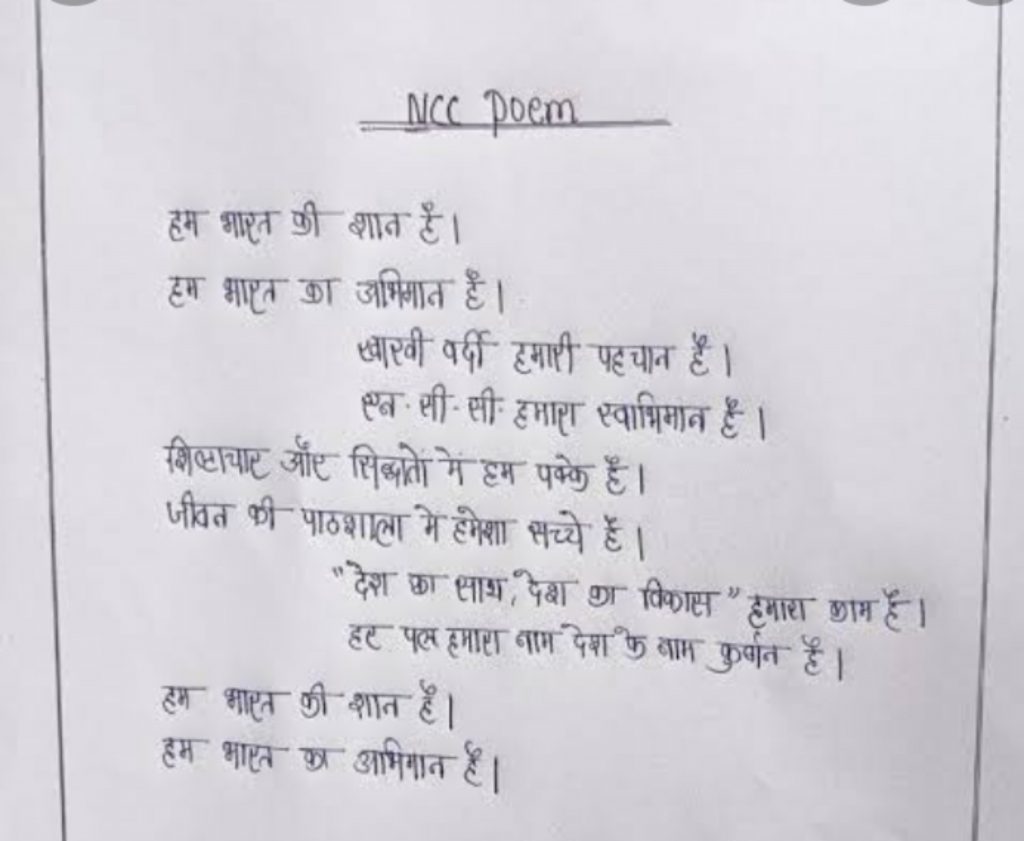 NCC Poem
हम भारत की शान है।
हम भारत का अभिमान है।
खाखी वर्दी हमारी पहचान है।
एन. सी. सी. हमारा स्वाभिमान है।
शिष्टाचार और सिद्धांतो में हम पक्के है।
जीवन की पाठशाला में हमेशा सच्चे है।
"देश का साथ, देश का विकास" हमारा काम है।
हर पल हमारा नाम देश के नाम कुर्बान है।
हम भारत की शान है।
हम भारत का अभिमान है।